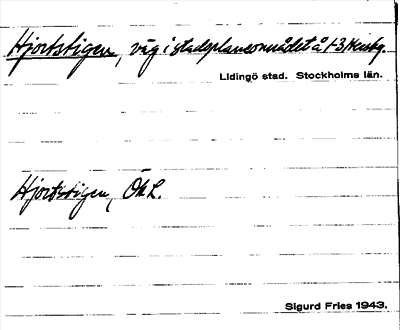 Hjortstigen, väg i stadsplaneområdet å 1-3
Lidingö stad. Stockholms län.
Hjortstigen, Ök L.
Sigurd Fries 1943.